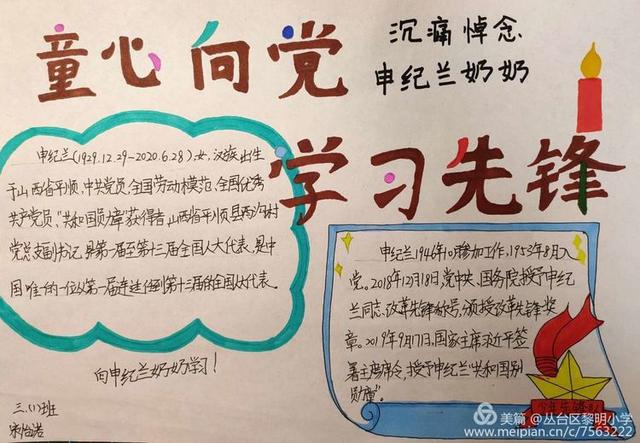 童心向党
沉痛悼念
申纪兰奶奶
学习先锋
申纪兰(1929.12.29-2020.6.28).女,汉族.出生
于山西省平顺,中共党员,全国劳动模范.全国优秀
共产党员,"共和国勋章"获得者,山西省平顺县西沟村
党总支副书记,第一届至第十三届全国人大代表,是中
国唯一的一位从第一届连任到第十三届的全国人大代表.
向申纪兰奶奶学习!
三.(1)班
申纪兰1946年10参加工作,1953年8月入
党。2018年12月18日,党中央、国务院授予申纪
兰同志,改革先锋称号,颁授改革先锋奖
章。2019年9月17日,国家主席习近平签
署主席令,授予申纪兰"共和国
勋章"。
少年先锋队
美篇 @丛台区黎明小学
www.meipian.cn/c/7563222